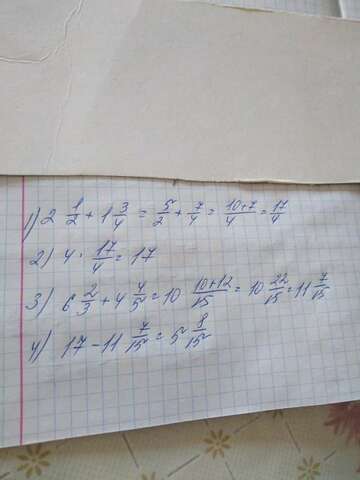 1) 2 1/2 + 1 3/4 = 5/2 + 7/4 = 10+7/4 = 17/4
2) 4 · 17/4 = 17
3) 6 2/3 + 4 4/5 = 10 10+12/15 = 10 22/15 = 11 7/15
4) 17 - 11 7/15 = 5 8/15